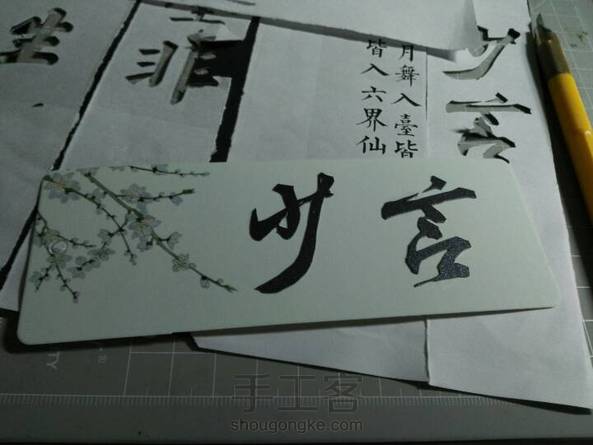 月舞入臺皆
皆入六界仙
少言
手工客
shougongke.com